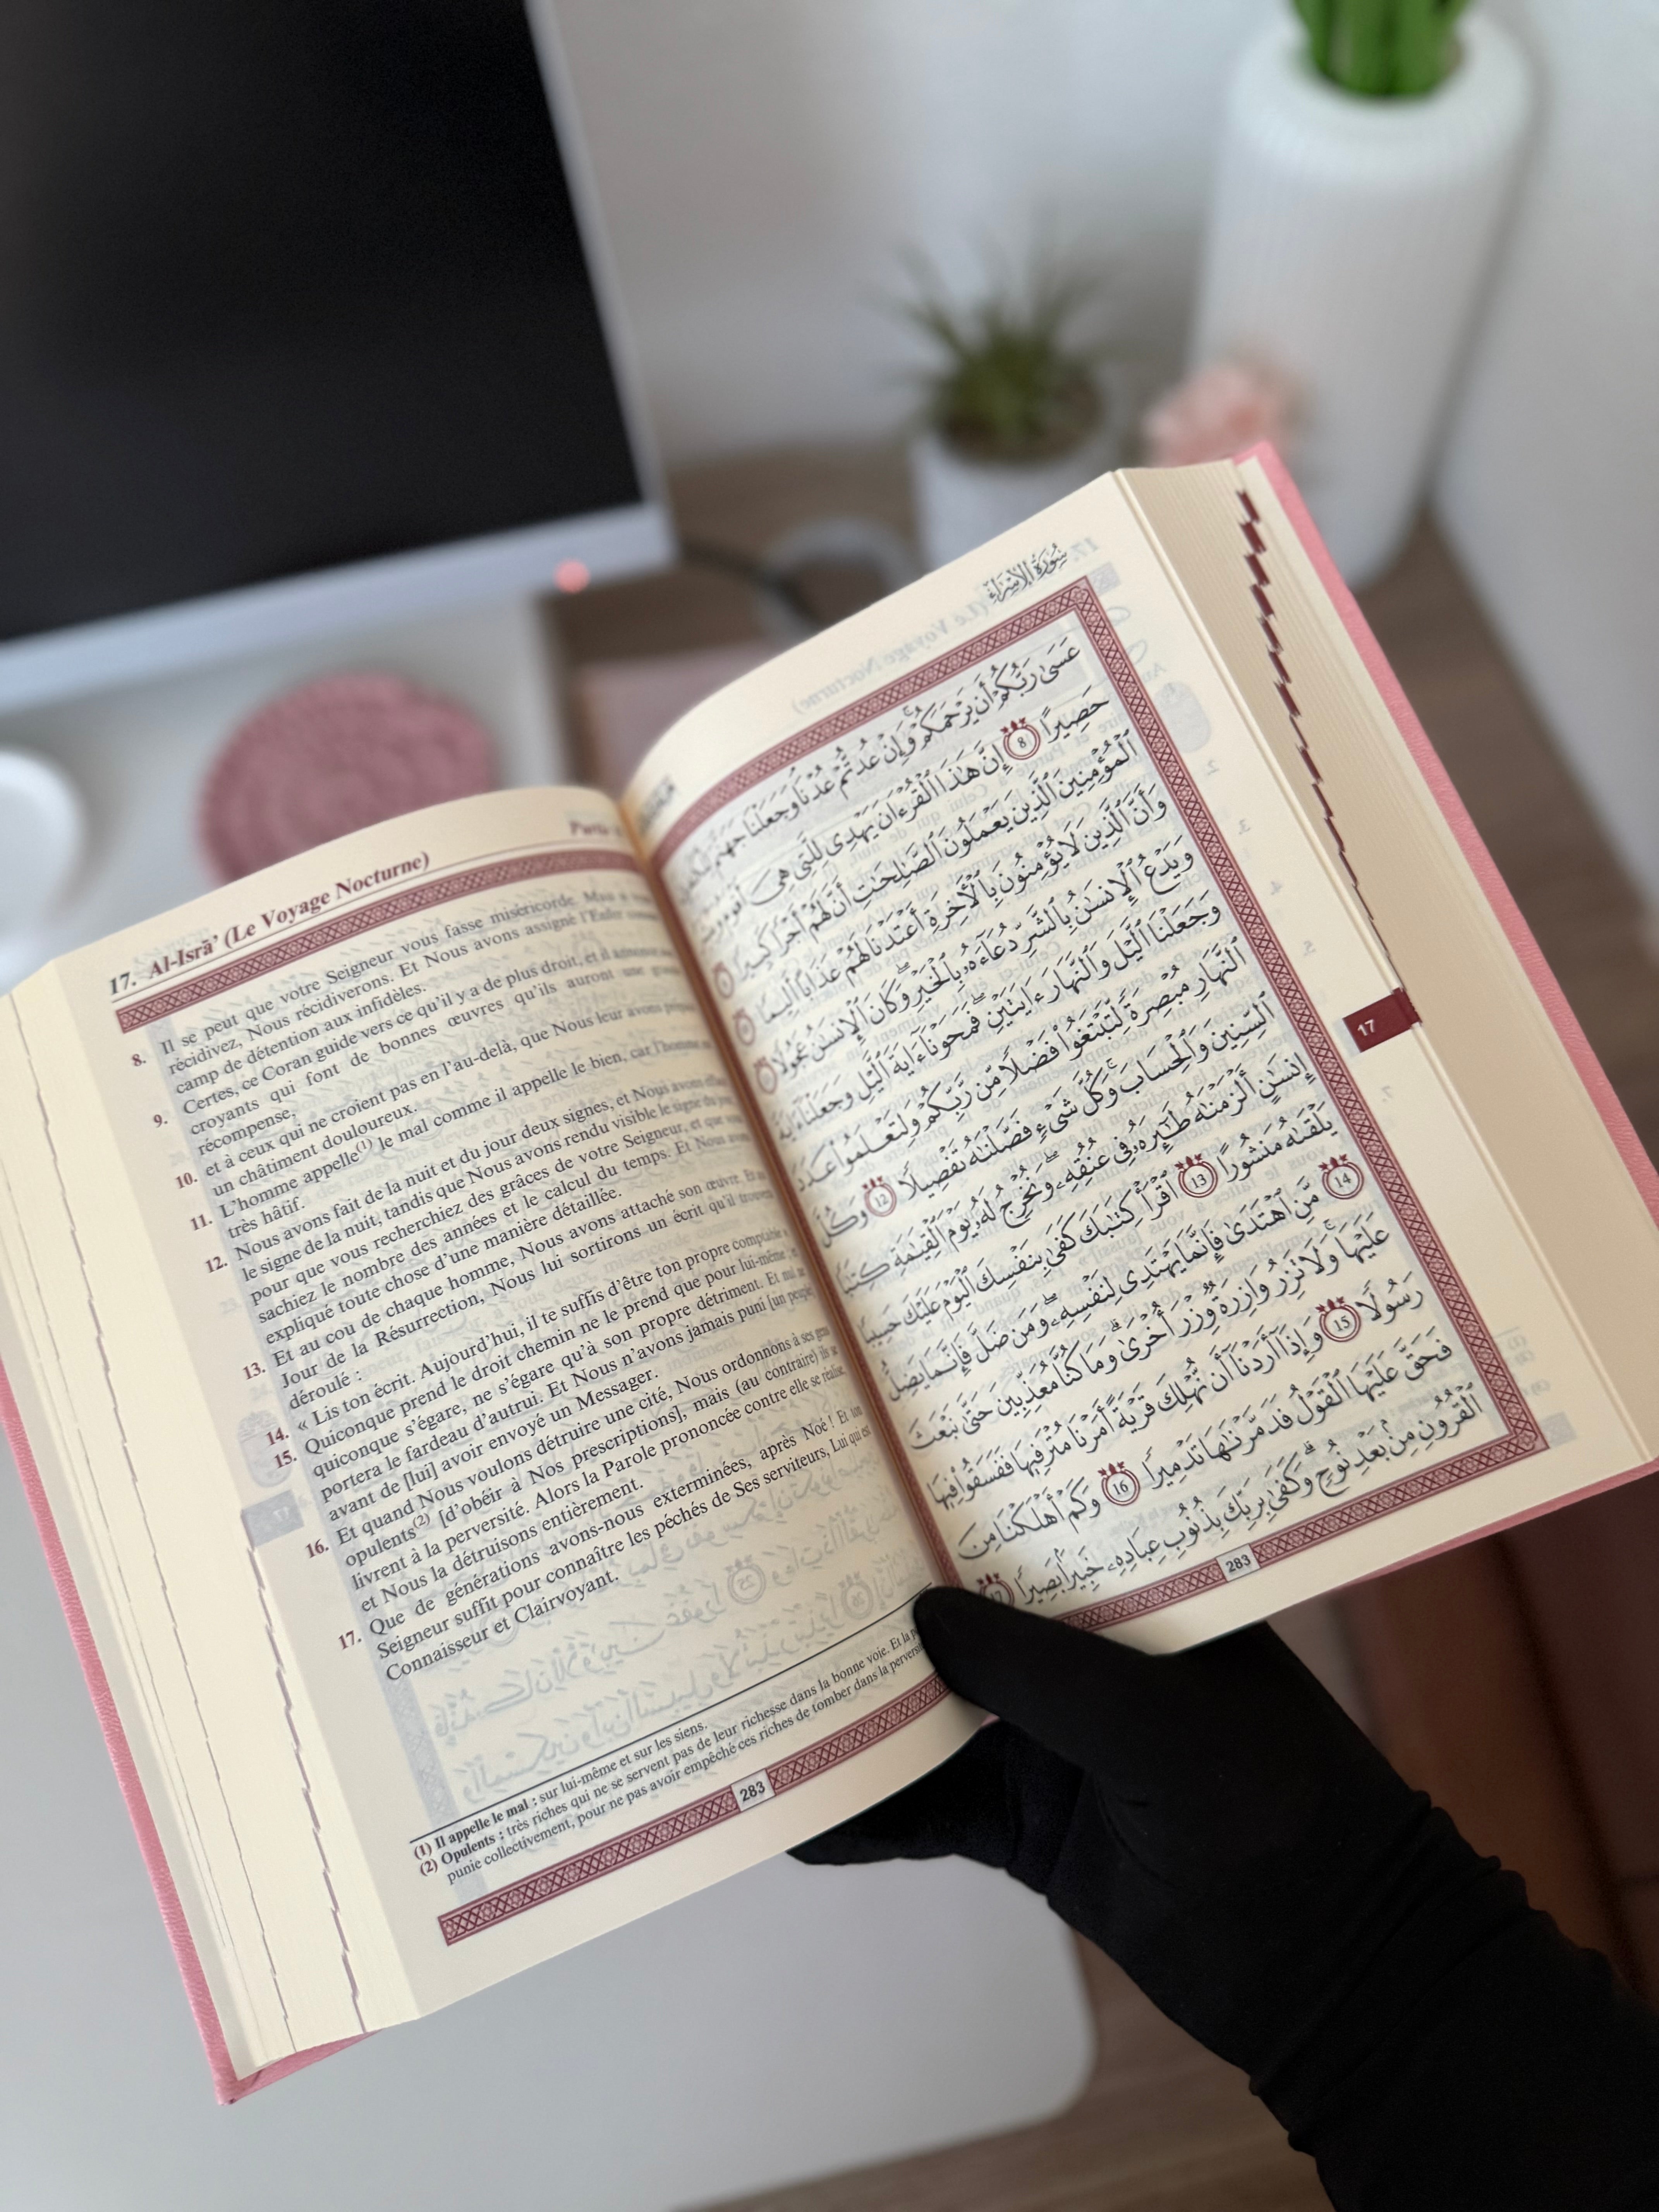 17. Al-Isrā’ (Le Voyage Nocturne)
8. Il se peut que votre Seigneur vous fasse miséricorde. Mais si
récidivez, Nous récidiverons. Et Nous avons assigné l’Enfer
camp de détention aux infidèles.
9. Certes, ce Coran guide vers ce qu’il y a de plus droit, et il
croyants qui font de bonnes œuvres qu’ils auront une
récompense,
10. et à ceux qui ne croient pas en l’au-delà, que Nous leur avons
un châtiment douloureux.
11. L’homme appelle(1) le mal comme il appelle le bien, car l’homme
très hâtif.
12. Nous avons fait de la nuit et du jour deux signes, et Nous avons
le signe de la nuit, tandis que Nous avons rendu visible le signe du
pour que vous recherchiez des grâces de votre Seigneur, et que
sachiez le nombre des années et le calcul du temps. Et Nous
expliqué toute chose d’une manière détaillée.
13. Et au cou de chaque homme, Nous avons attaché son œuvre. Et
Jour de la Résurrection, Nous lui sortirons un écrit qu’il
déroulé :
14. « Lis ton écrit. Aujourd’hui, il te suffis d’être ton propre comptable
15. Quiconque prend le droit chemin ne le prend que pour lui-même ;
quiconque s’égare, ne s’égare qu’à son propre détriment. Et nul
portera le fardeau d’autrui. Et Nous n’avons jamais puni [un peuple]
avant de [lui] avoir envoyé un Messager.
16. Et quand Nous voulons détruire une cité, Nous ordonnons à ses gens
opulents(2) [d’obéir à Nos prescriptions], mais (au contraire) ils
livrent à la perversité. Alors la Parole prononcée contre elle se réalise
et Nous la détruisons entièrement.
17. Que de générations avons-nous exterminées, après Noé ! Et ton
Seigneur suffit pour connaître les péchés de Ses serviteurs, Lui qui est
Connaisseur et Clairvoyant.
(1) Il appelle le mal : sur lui-même et sur les siens.
(2) Opulents : très riches qui ne se servent pas de leur richesse dans la bonne voie. Et la
punie collectivement, pour ne pas avoir empêché ces riches de tomber dans la
283
سُورَةُ الإِسْرَاءِ
عَسَىٰ رَبُّكُمْ أَن يَرْحَمَكُمْ ۚ وَإِنْ عُدتُّمْ عُدْنَا ۘ وَجَعَلْنَا جَهَنَّمَ
حَصِيرًا 8 إِنَّ هَٰذَا ٱلْقُرْءَانَ يَهْدِى لِلَّتِى هِىَ
ٱلْمُؤْمِنِينَ ٱلَّذِينَ يَعْمَلُونَ ٱلصَّٰلِحَٰتِ أَنَّ لَهُمْ أَجْرًا كَبِيرًا
وَأَنَّ ٱلَّذِينَ لَا يُؤْمِنُونَ بِٱلْأَخِرَةِ أَعْتَدْنَا لَهُمْ عَذَابًا أَلِيمًا
وَيَدْعُ ٱلْإِنسَٰنُ بِٱلشَّرِّ دُعَآءَهُۥ بِٱلْخَيْرِ ۖ وَكَانَ ٱلْإِنسَٰنُ عَجُولًا
وَجَعَلْنَا ٱلَّيْلَ وَٱلنَّهَارَ ءَايَتَيْنِ ۖ فَمَحَوْنَآ ءَايَةَ ٱلَّيْلِ وَجَعَلْنَآ ءَايَةَ
ٱلنَّهَارِ مُبْصِرَةً لِّتَبْتَغُوا۟ فَضْلًا مِّن رَّبِّكُمْ وَلِتَعْلَمُوا۟ عَدَدَ
ٱلسِّنِينَ وَٱلْحِسَابَ ۚ وَكُلَّ شَىْءٍ فَصَّلْنَٰهُ تَفْصِيلًا 12 وَكُلَّ
إِنسَٰنٍ أَلْزَمْنَٰهُ طَٰٓئِرَهُۥ فِى عُنُقِهِۦ ۖ وَنُخْرِجُ لَهُۥ يَوْمَ ٱلْقِيَٰمَةِ كِتَٰبًا
يَلْقَىٰهُ مَنشُورًا 13 ٱقْرَأْ كِتَٰبَكَ كَفَىٰ بِنَفْسِكَ ٱلْيَوْمَ عَلَيْكَ حَسِيبًا
14 مَّنِ ٱهْتَدَىٰ فَإِنَّمَا يَهْتَدِى لِنَفْسِهِۦ ۖ وَمَن ضَلَّ فَإِنَّمَا يَضِلُّ
عَلَيْهَا ۚ وَلَا تَزِرُ وَازِرَةٌ وِزْرَ أُخْرَىٰ ۗ وَمَا كُنَّا مُعَذِّبِينَ حَتَّىٰ نَبْعَثَ
رَسُولًا 15 وَإِذَآ أَرَدْنَآ أَن نُّهْلِكَ قَرْيَةً أَمَرْنَا مُتْرَفِيهَا فَفَسَقُوا۟ فِيهَا
فَحَقَّ عَلَيْهَا ٱلْقَوْلُ فَدَمَّرْنَٰهَا تَدْمِيرًا 16 وَكَمْ أَهْلَكْنَا مِنَ
ٱلْقُرُونِ مِنۢ بَعْدِ نُوحٍ ۗ وَكَفَىٰ بِرَبِّكَ بِذُنُوبِ عِبَادِهِۦ خَبِيرًۢا بَصِيرًا
283
17